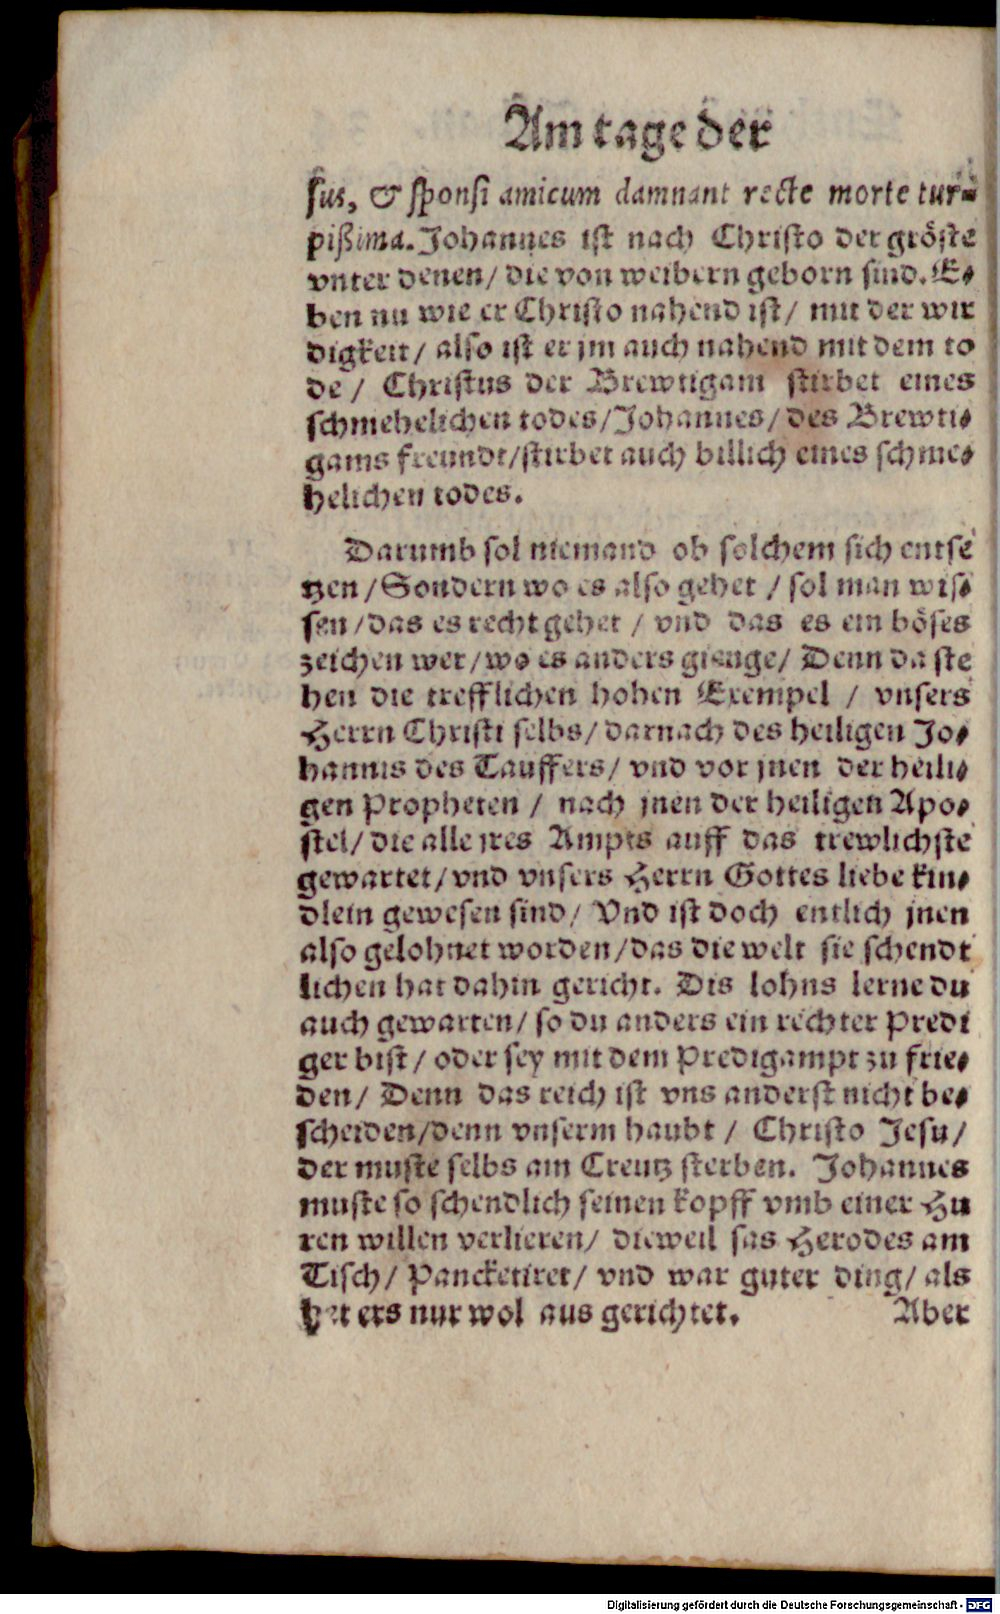 Am tage der
sus, & sponsi amicum damnant recte morte tur-
pißima. Johannes ist nach Christo der gröste
vnter denen/ die von weibern geborn sind. E-
ben nu wie er Christo nahend ist/ mit der wir
digkeit/ also ist er jm auch nahend mit dem to
de/ Christus der Brewtigam stirbet eines
schmehelichen todes/ Johannes/ des Brewti-
gams freundt/ stirbet auch billich eines schme-
helichen todes.
Darumb sol niemand ob solchem sich entse
tzen/ Sondern wo es also gehet/ sol man wis-
sen/ das es recht gehet/ vnd das es ein böses
zeichen wer/ wo es anders gienge/ Denn da ste
hen die trefflichen hohen Exempel/ vnsers
Herrn Christi selbs/ darnach des heiligen Jo-
hannis des Tauffers/ vnd vor jnen der heili-
gen Propheten/ nach jnen der heiligen Apo-
stel/ die alle jres Ampts auff das trewlichste
gewartet/ vnd vnsers Herrn Gottes liebe kin-
dlein gewesen sind/ Vnd ist doch entlich jnen
also gelohnet worden/ das die welt sie schendt
lichen hat dahin gericht. Dis lohns lerne du
auch gewarten/ so du anders ein rechter Predi
ger bist/ oder sey mit dem Predigampt zu frie-
den/ Denn das reich ist vns anderst nicht be-
scheiden/ denn vnserm haubt/ Christo Jesu/
der muste selbs am Creutz sterben. Johannes
muste so schendlich seinen kopff vmb einer Hu
ren willen verlieren/ dieweil sas Herodes am
Tisch/ Pancketiret/ vnd war guter ding/ als
het ers nur wol aus gerichtet. Aber
Digitalisierung gefördert durch die Deutsche Forschungsgemeinschaft - DFG